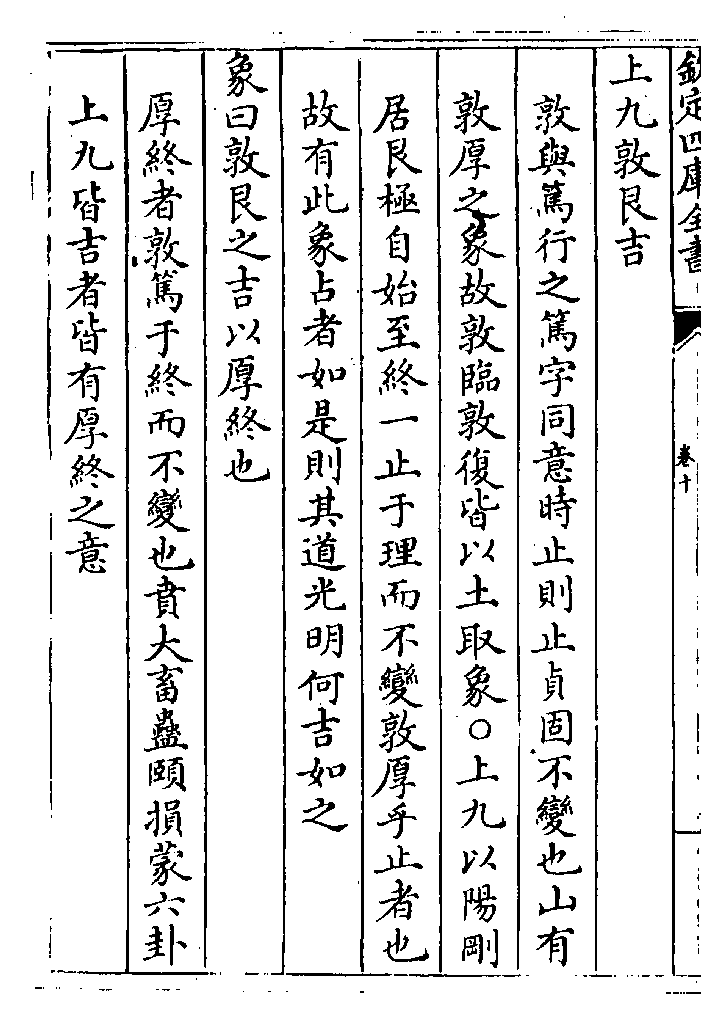 欽定四庫全書
卷十
上九敦艮吉
敦與篤行之篤字同意時止則止貞固不變也山有
敦厚之象故敦臨敦復皆以土取象○上九以陽剛
居艮極自始至終一止于理而不變敦厚乎止者也
故有此象占者如是則其道光明何吉如之
象曰敦艮之吉以厚終也
厚終者敦篤于終而不變也賁大畜蠱頤損蒙六卦
上九皆吉者皆有厚終之意